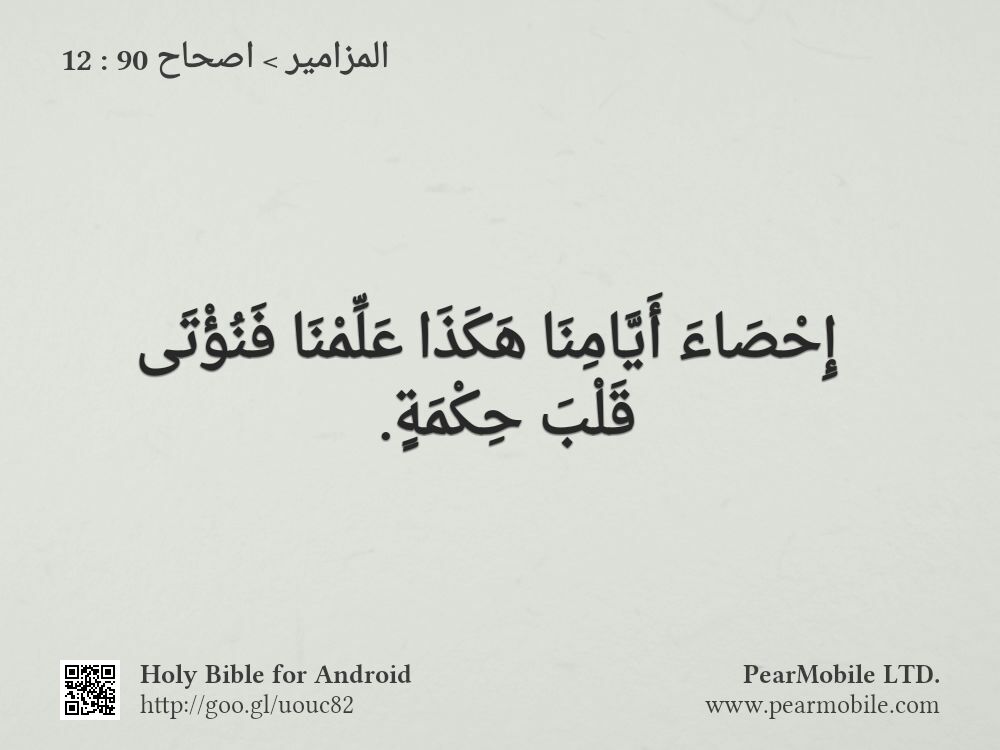 المزامير > اصحاح 90 : 12
إِحْصَاءَ أَيَّامِنَا هَكَذَا عَلِّمْنَا فَنُؤْتَى
قَلْبَ حِكْمَةٍ.
Holy Bible for Android
http://goo.gl/uouc82
PearMobile LTD.
www.pearmobile.com